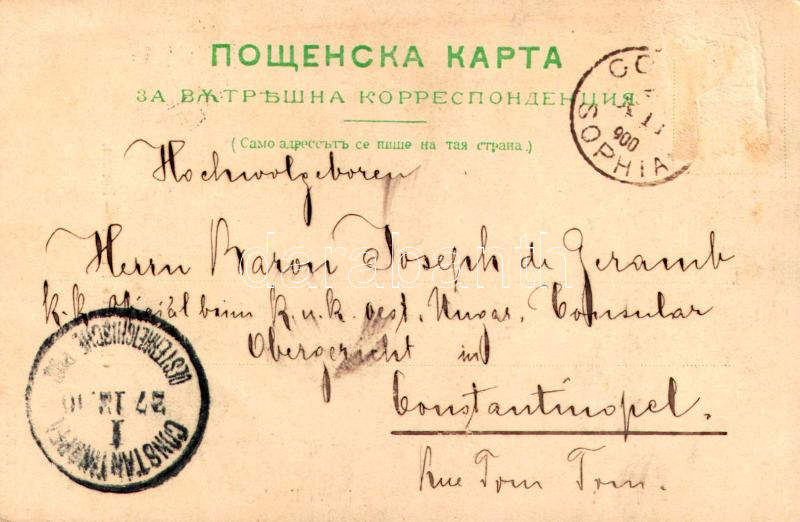 ПОЩЕНСКА КАРТА
ЗА ВѪТРѢШНА КОРРЕСПОНДЕНЦИЯ
(Само адрессътъ се пише на тая страна.)
SOPHIA
900
Hochwolgeboren
Herrn Baron Joseph de Geramb
k.k. Offizial beim k. u. k. oest. Ungar. Consular
Obergericht in
Constantinopel.
Rue Tom Tom.
CONSTANTINOPEL
I
27 IX
OESTERREICHISCHE POST
darabanth